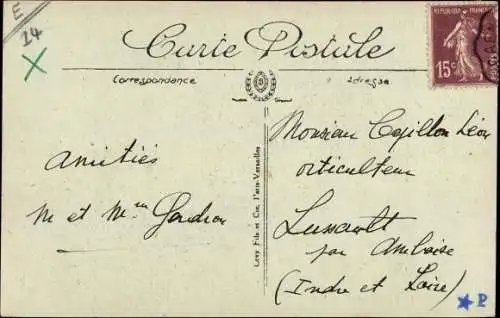 E
24
X
Carte Postale
Correspondance
Adresse
REPUBLIQUE FRANÇAISE
15c
Amitiés
M et Mme Gendron
Levy Fils et Cie, Paris-Versailles
Monsieur Léon
orticulteur
Lussault
par Amboise
(Indre et Loire)
★P